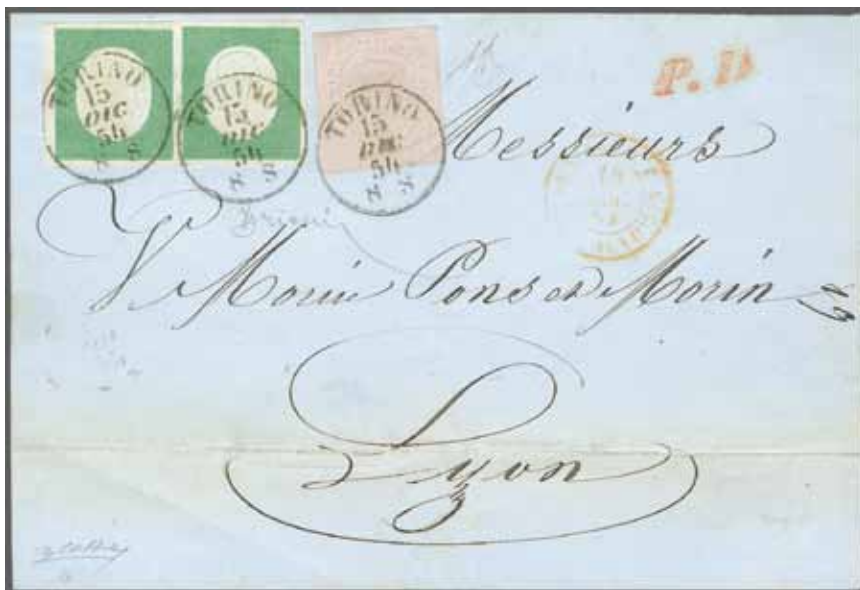 TORINO
15
DIC
54
8 S
TORINO
15
DIC
54
8 S
TORINO
15
DIC
54
8 S
P. D
Messieurs
Morin Pons et Morin
Lyon